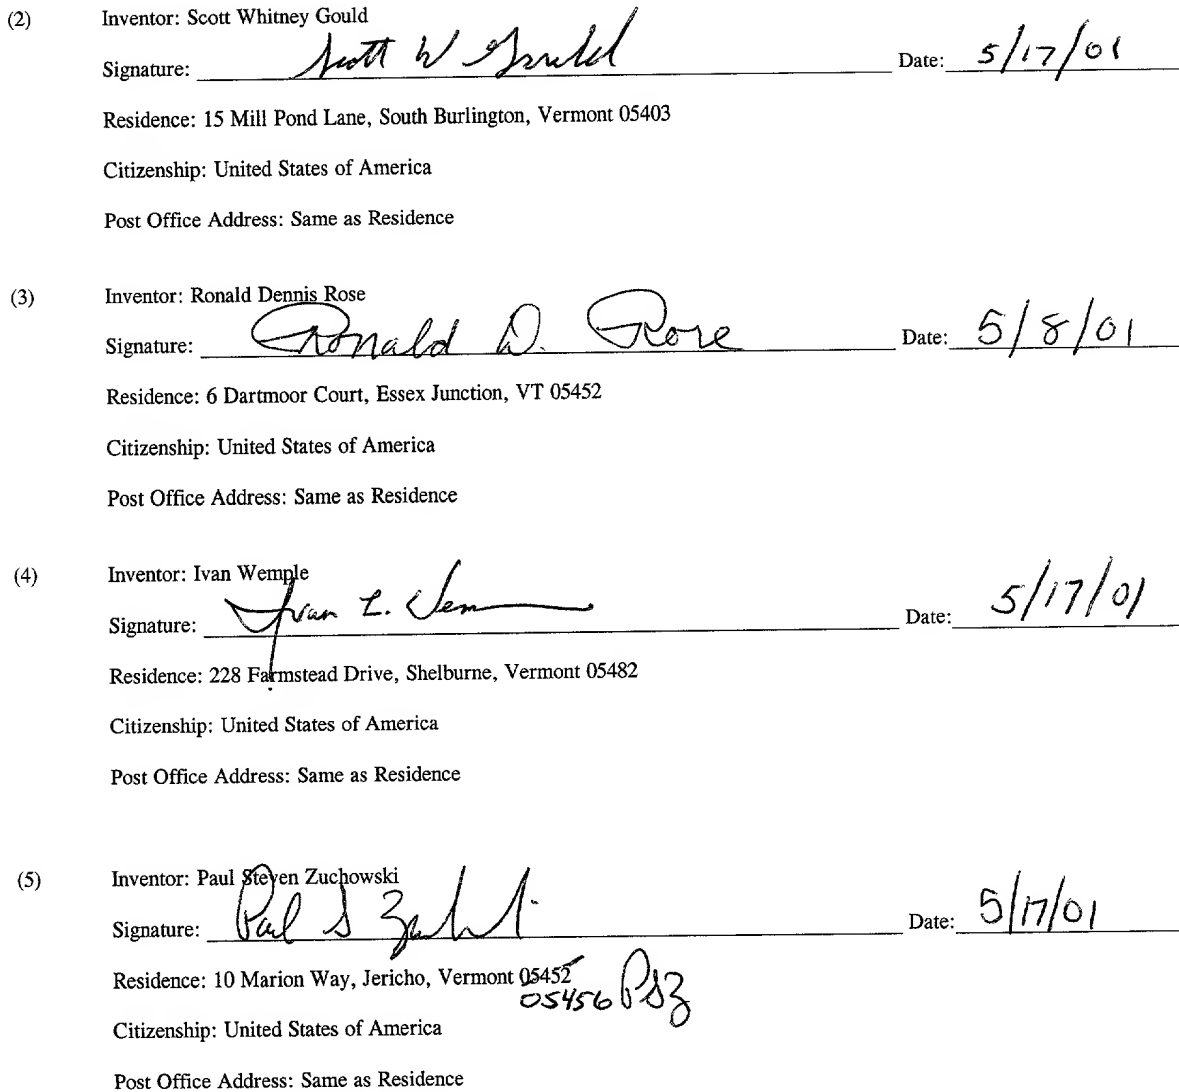 (2) Inventor: Scott Whitney Gould
Signature: Scott W Gould Date: 5/17/01
Residence: 15 Mill Pond Lane, South Burlington, Vermont 05403
Citizenship: United States of America
Post Office Address: Same as Residence
(3) Inventor: Ronald Dennis Rose
Signature: Ronald D. Rose Date: 5/8/01
Residence: 6 Dartmoor Court, Essex Junction, VT 05452
Citizenship: United States of America
Post Office Address: Same as Residence
(4) Inventor: Ivan Wemple
Signature: Ivan L. Date: 5/17/01
Residence: 228 Farmstead Drive, Shelburne, Vermont 05482
Citizenship: United States of America
Post Office Address: Same as Residence
(5) Inventor: Paul Steven Zuchowski
Signature: Paul S Date: 5/17/01
Residence: 10 Marion Way, Jericho, Vermont 05452
05456 PSZ
Citizenship: United States of America
Post Office Address: Same as Residence